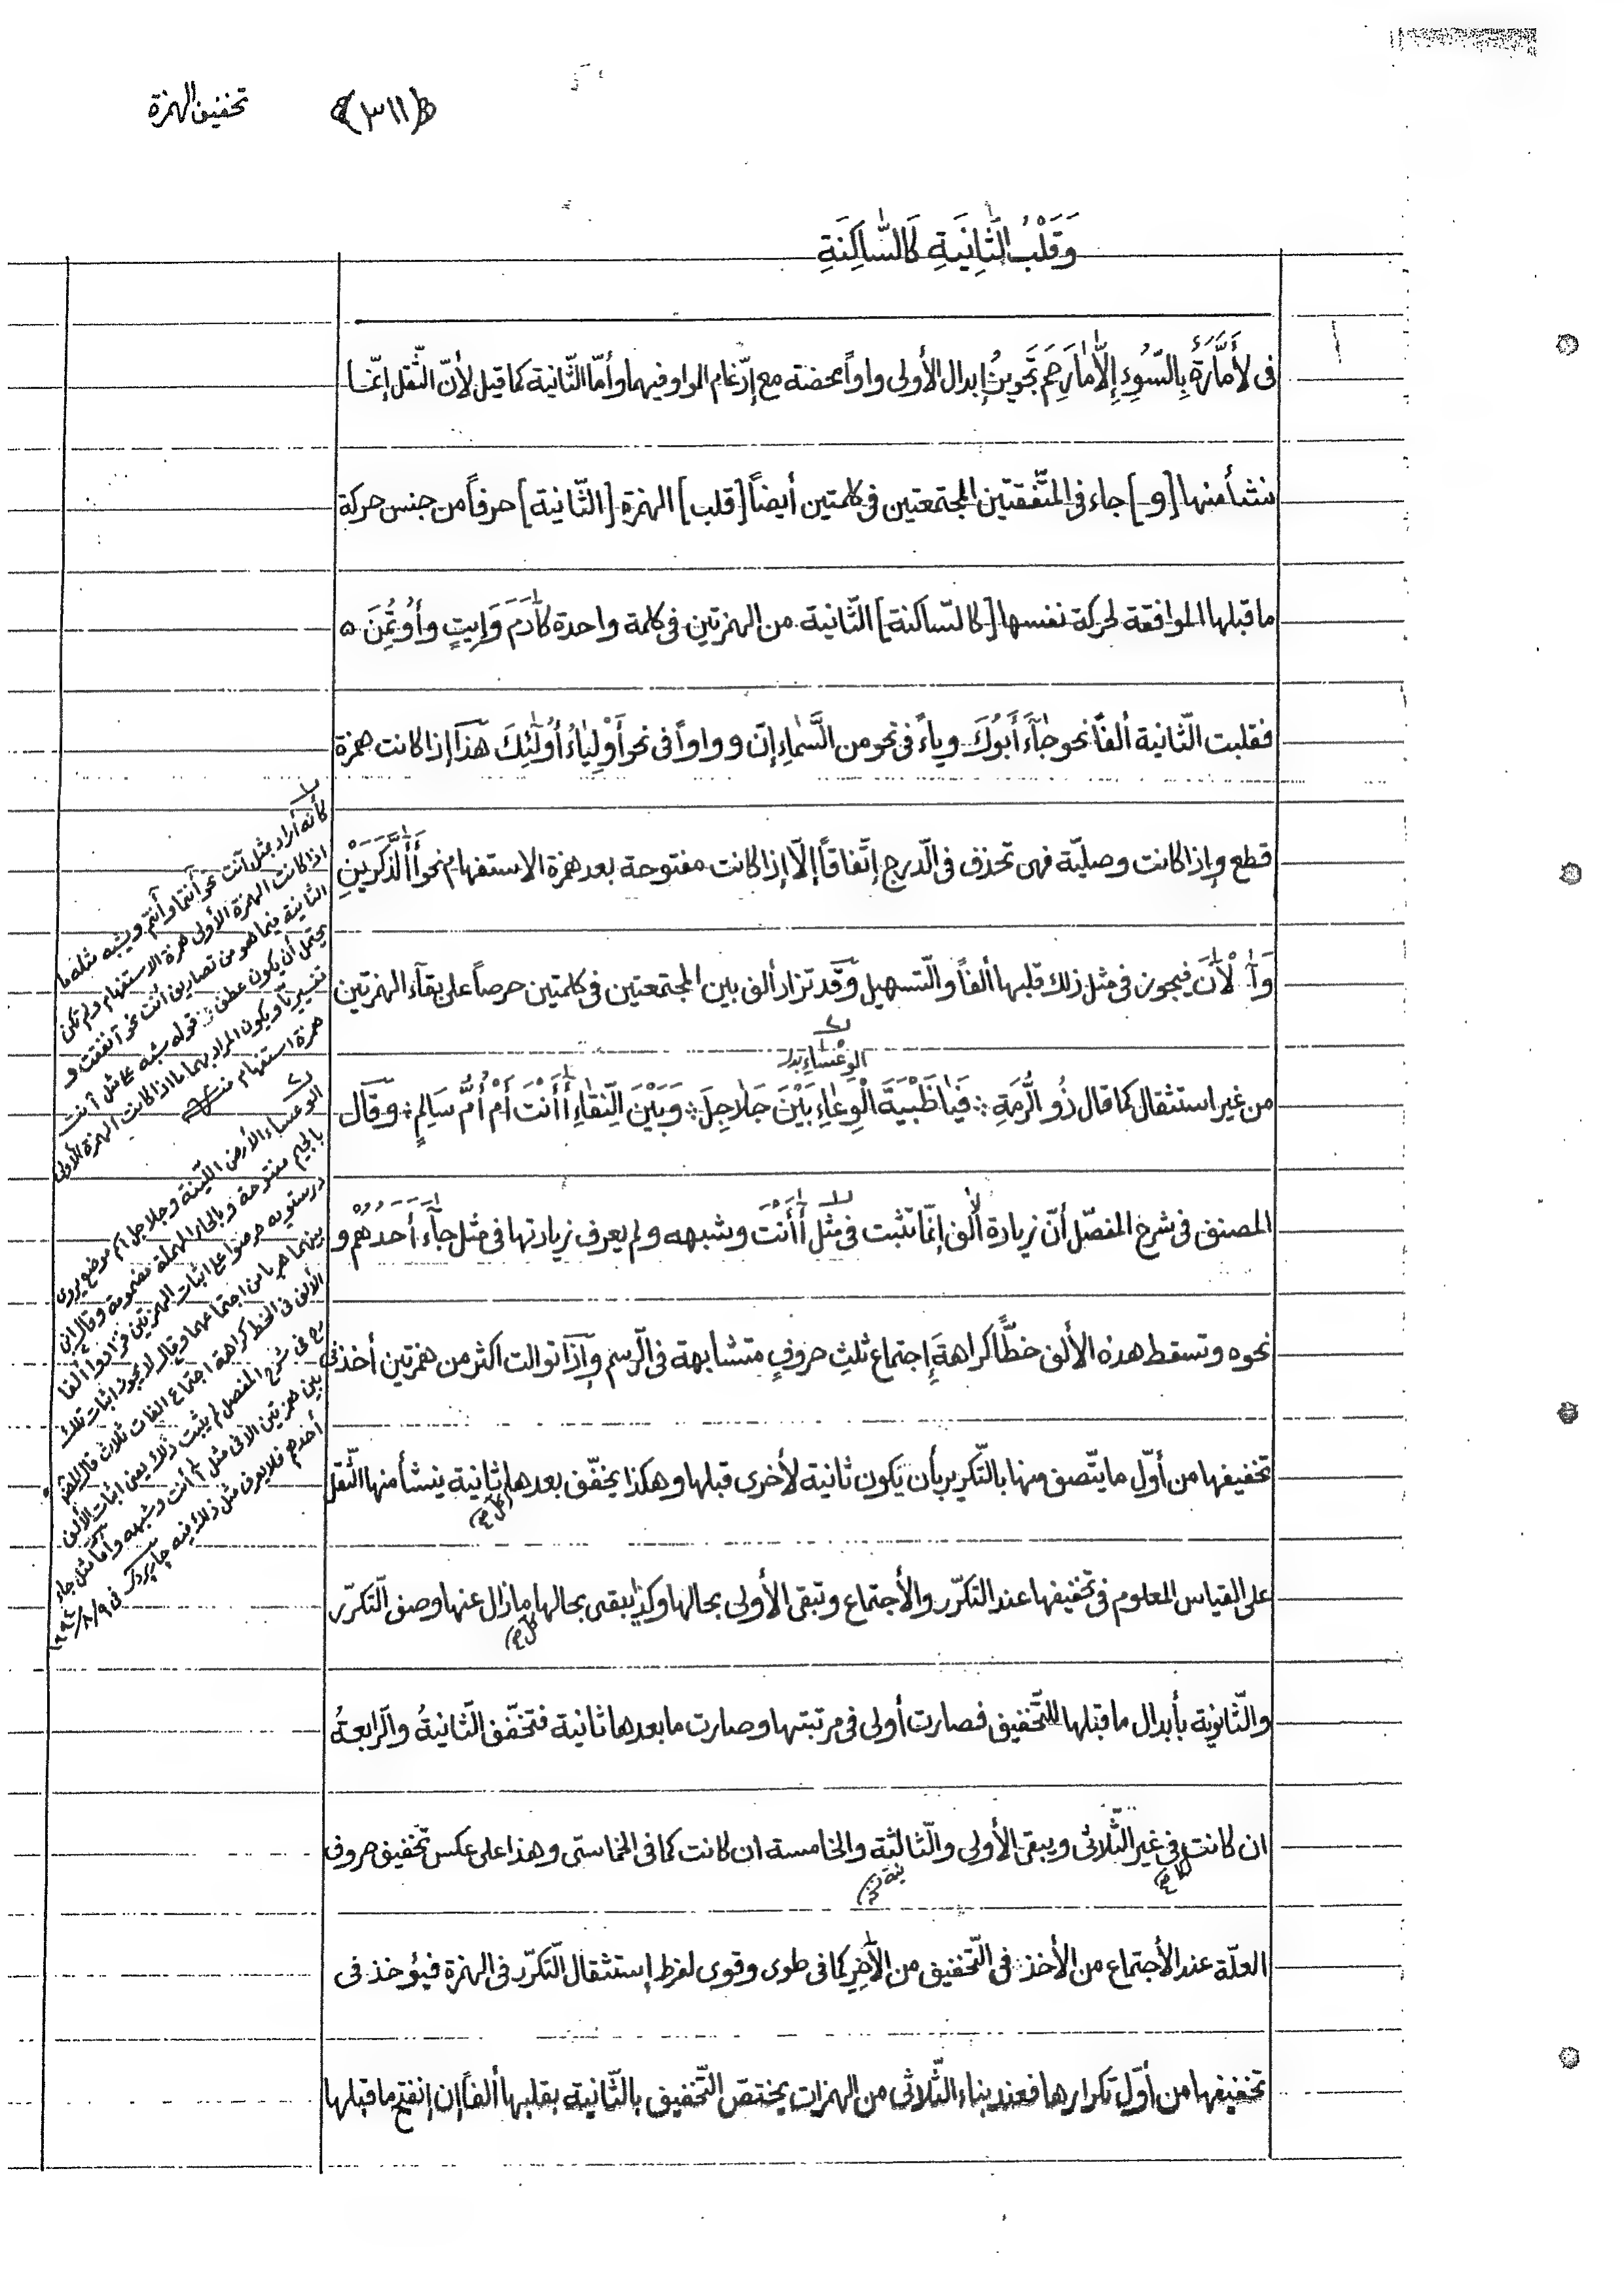 تخفيف الهمزة
﴿٣١١﴾
وَقَلْبُ الثَّانِيَةِ كَالسَّاكِنَةِ
فى لأَمَّارَةٌ بِالسُّوءِ إِلَّا مَا رَحِمَ تجويزُ إبدال الأولى واواً محضة مع إدّغام الواو فيها وأمّا الثّانية كما قيل لأنّ الثّقل إنّما
ننشأ منها [و] جاء فى المتّفقتين المجتمعتين فى كلمتين أيضاً [قلب] الهمزة [الثّانية] حرفاً من جنس حركة
ما قبلها الموافقة لحركة نفسها [كالسّاكنة] الثّانية من الهمزتين فى كلمة واحدة كآدَمَ وَإِيتِ وأُوتُمِنَ
فقلبت الثّانية ألفاً نحو جَآءَ أَبُوكَ وياءً فى نحو من السَّمَاءِ إن وواواً فى نحو أَوْلِيَاءُ أُولَٰئِكَ هذا إذا كانت همزة
قطع وإذا كانت وصليّة فهى تحذف فى الدّرج إتّفاقاً إلّا إذا كانت مفتوحة بعد همزة الاستفهام نحو أَالذَّكَرَيْنِ
وَآلْآنَ فيجوز فى مثل ذلك قلبها ألفاً والتّسهيل وقد تزاد ألف بين المجتمعتين فى كلمتين حرصاً على بقآء الهمزتين
الوعْسَاءِ بدل
من غير استثقال كما قال ذُو الرُّمَةِ فَيَا ظَبْيَةَ الْوِعَاءِ بَيْنَ جَلَاجِلَ وَبَيْنَ النِّقَاءِ أَأَنْتَ أَمْ أُمُّ سَالِمٍ وقال
المصنف فى شرح المفصّل أنّ زيادة الألف إنّما تثبت فى مثل أَأَنْتَ وشبهه ولم يعرف زيادتها فى مثل جَآءَ أَحَدُهُمْ و
نحوه وتسقط هذه الألف خطّاً كراهةَ إجتماع ثلثِ حروفٍ متشابهة فى الرّسم وإذا توالت اكثر من همزتين أخذ فى
تخفيفها من أوّل ما يتّصف منها بالتّكرير بأن يكون ثانية لأخرى قبلها وهكذا يخفّف بعدها ثانية ينشأ منها الثّقل
على القياس المعلوم فى تخفيفها عند التكرّر والأجتماع وتبقى الأولى بحالها وكذا يبقى بحالها ما زال عنها وصف التكرّر
والثّانوية بأبدال ما قبلها للتّخفيف فصارت أولى فى مرتبتها وصارت ما بعدها ثانية فتخفّف الثّانيةُ والرّابعةُ
ان كانت فى غير الثّلاثى ويبقى الأولى والثّالثة والخامسة ان كانت كما فى الخماسّى وهذا على عكس تخفيف حروف
العلّة عند الأجتماع من الأخذ فى التّخفيف من الآخِرِ كما فى طوى وقوى لفرط إستثقال التّكرّر فى الهمزة فيؤخذ فى
تخفيفها من أوّل تكرارها فعند بناء الثّلاثى من الهمزات يختصّ التّخفيف بالثّانية بقلبها ألفاً إن إنفتح ما قبلها
كأنه أراد بمثل آنت نحو أأنتما وأأنتم ويشبه مثله ما
اذا كانت الهمزة الأولى همزة الاستفهام ولم تكن
الثانية فيما هو من تصاريف أنت نحو أنفقت و
يحتمل أن يكون عطف قوله شبه على مثل أأنت
تفسيرياً ويكون المراد بهما ما اذا كانت الهمزة الأولى
همزة استفهام
الوعساء الأرض اللّينة وجلاجل اسم موضع يروى
بالجيم مفتوحة وبالحاء المهملة مضمومة وقال ابن
درستويه حرصوا على اثبات الهمزتين فزادوا ألفا
بينهما هربا من اجتماعهما وقال لا يجوز اثبات تلك
الألف فى الخط كراهة اجتماع الفات ثلاث قال المصنف
فى شرح المفصل لم يثبت ذلك يعنى اثبات الألف
بين همزتين الا فى مثل أأنت وشبهه وأما مثل جاء
أحدهم فلا يعرف مثل ذلك فيه جاربردى